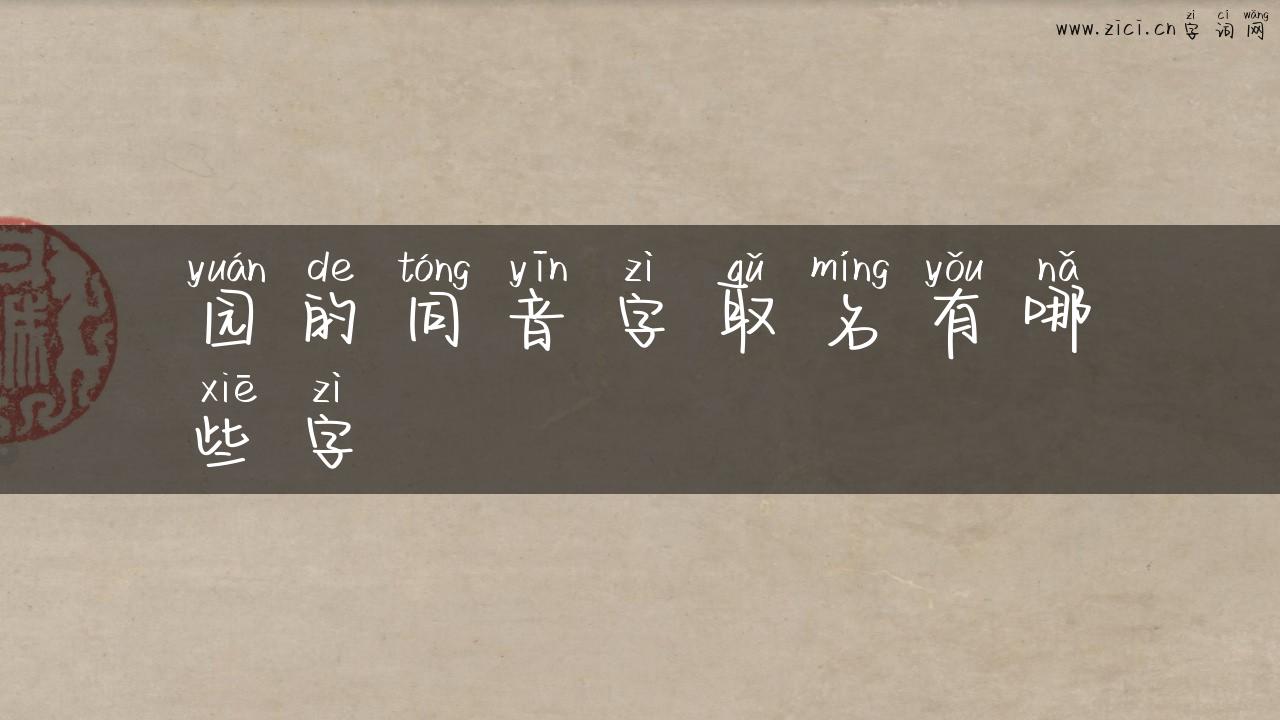 zì cí wǎng
www.zici.cn 字词网
yuán de tóng yīn zì qǔ míng yǒu nǎ
园的同音字取名有哪
xiē zì
些字